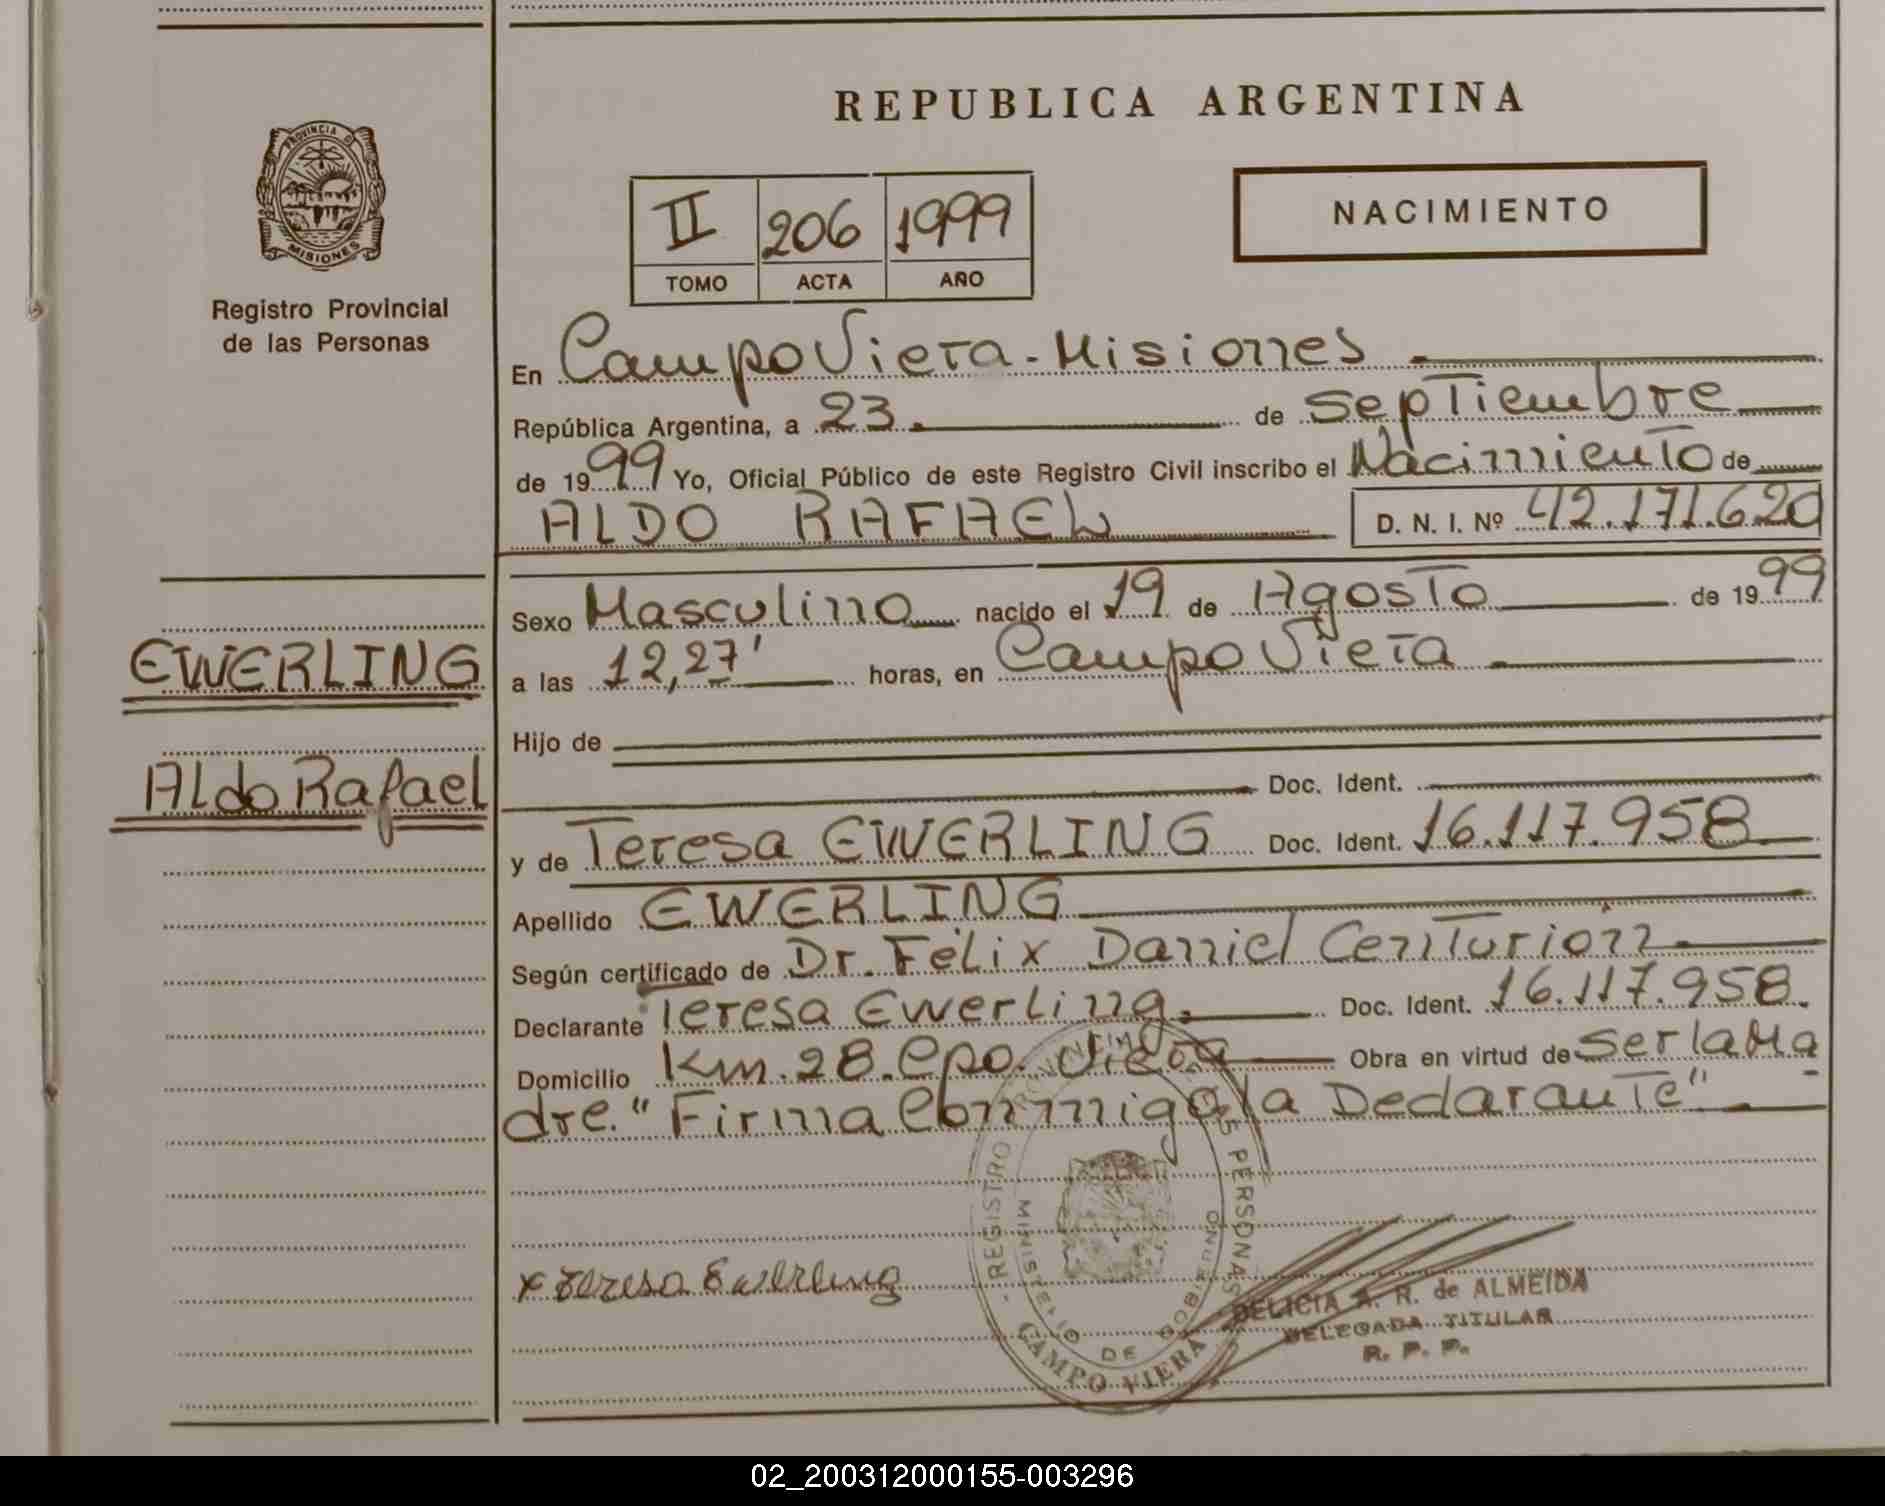 REPUBLICA ARGENTINA
PROVINCIA DE
MISIONES
Registro Provincial
de las Personas
II 206 1999
TOMO ACTA AÑO
NACIMIENTO
En Campo Viera - Misiones
República Argentina, a 23. de Septiembre
de 1999 Yo, Oficial Público de este Registro Civil inscribo el Nacimiento de
ALDO RAFAEL D. N. I. Nº 42.171.620
Sexo Masculino nacido el 19 de Agosto de 1999
EWERLING
a las 12,27' horas, en Campo Viera
Hijo de
Aldo Rafael
Doc. Ident.
y de Teresa EWERLING Doc. Ident. 16.117.958
Apellido EWERLING
Según certificado de Dr. Félix Daniel Centurión
Declarante Teresa Ewerling. Doc. Ident. 16.117.958.
Domicilio Km. 28. Cpo. Viera Obra en virtud de Ser la Ma
dre. "Firma Conmigo la Declarante"
x Teresa Ewerling
REGISTRO PROVINCIAL DE LAS PERSONAS
MINISTERIO DE GOBIERNO
CAMPO VIERA
DELICIA A. R. de ALMEIDA
DELEGADA TITULAR
R. P. P.
02_200312000155-003296